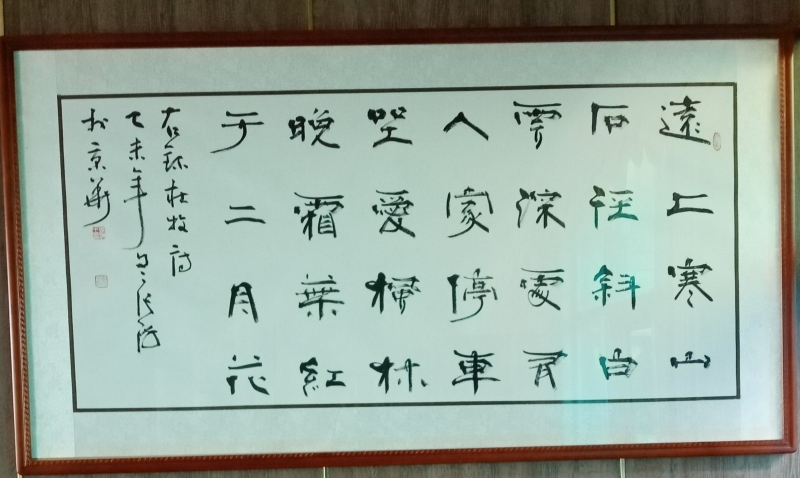 遠上寒山
石徑斜白
雲深處有
人家停車
坐愛楓林
晚霜葉紅
于二月花
右錄杜牧詩
乙未年
於京華